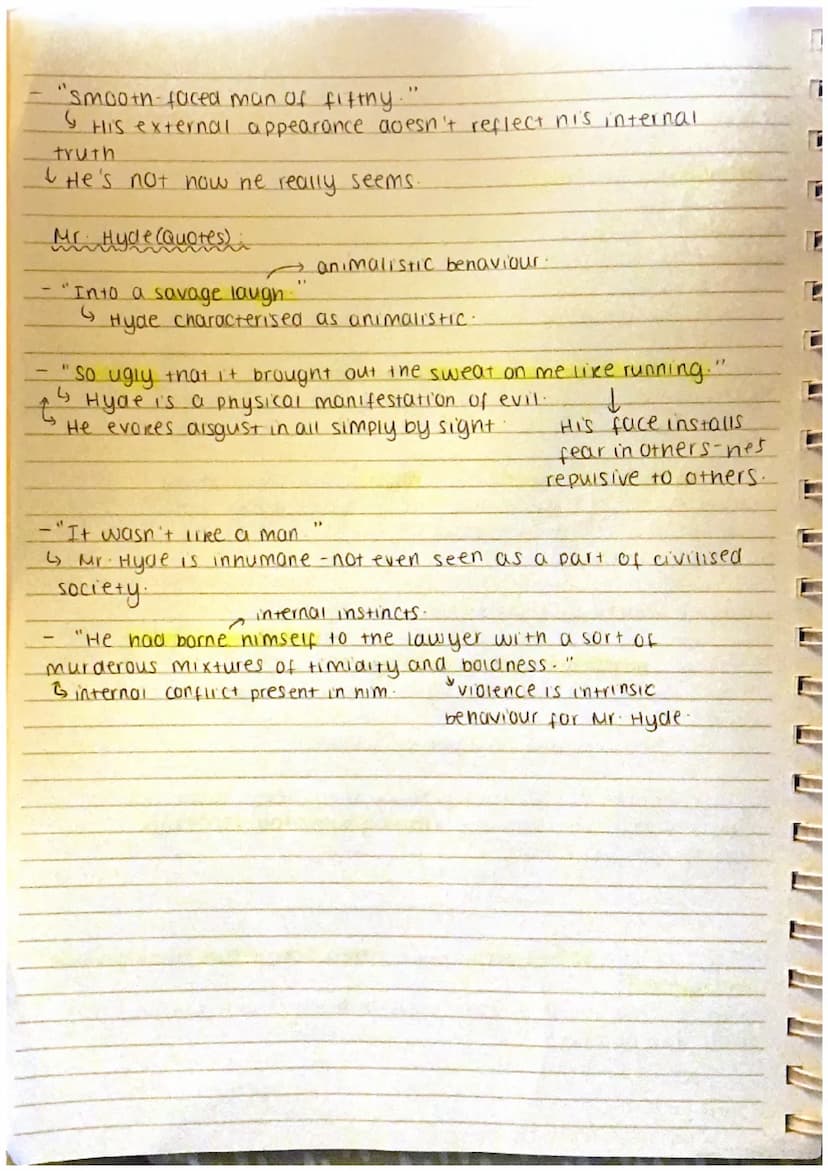 - "Smooth-faced man of fiftny."
↳ His external appearance doesn't reflect his internal
truth
↳ He's not how he really seems.
Mr. Hyde(Quotes):
→ animalistic behaviour.
- "Into a savage laugh."
↳ Hyde characterised as animalistic.
- "So ugly that it brought out the sweat on me like running."
↳ Hyde is a physical manifestation of evil. ↓
↳ He evokes disgust in all simply by sight. His face installs
fear in others-hes
repulsive to others.
- "It wasn't like a man "
↳ Mr. Hyde is inhumane - not even seen as a part of civilised
society.
→ internal instincts.
- "He had borne himself to the lawyer with a sort of
murderous mixtures of timidity and boldness."
↳ internal conflict present in him. ↘ violence is intrinsic
behaviour for Mr. Hyde.